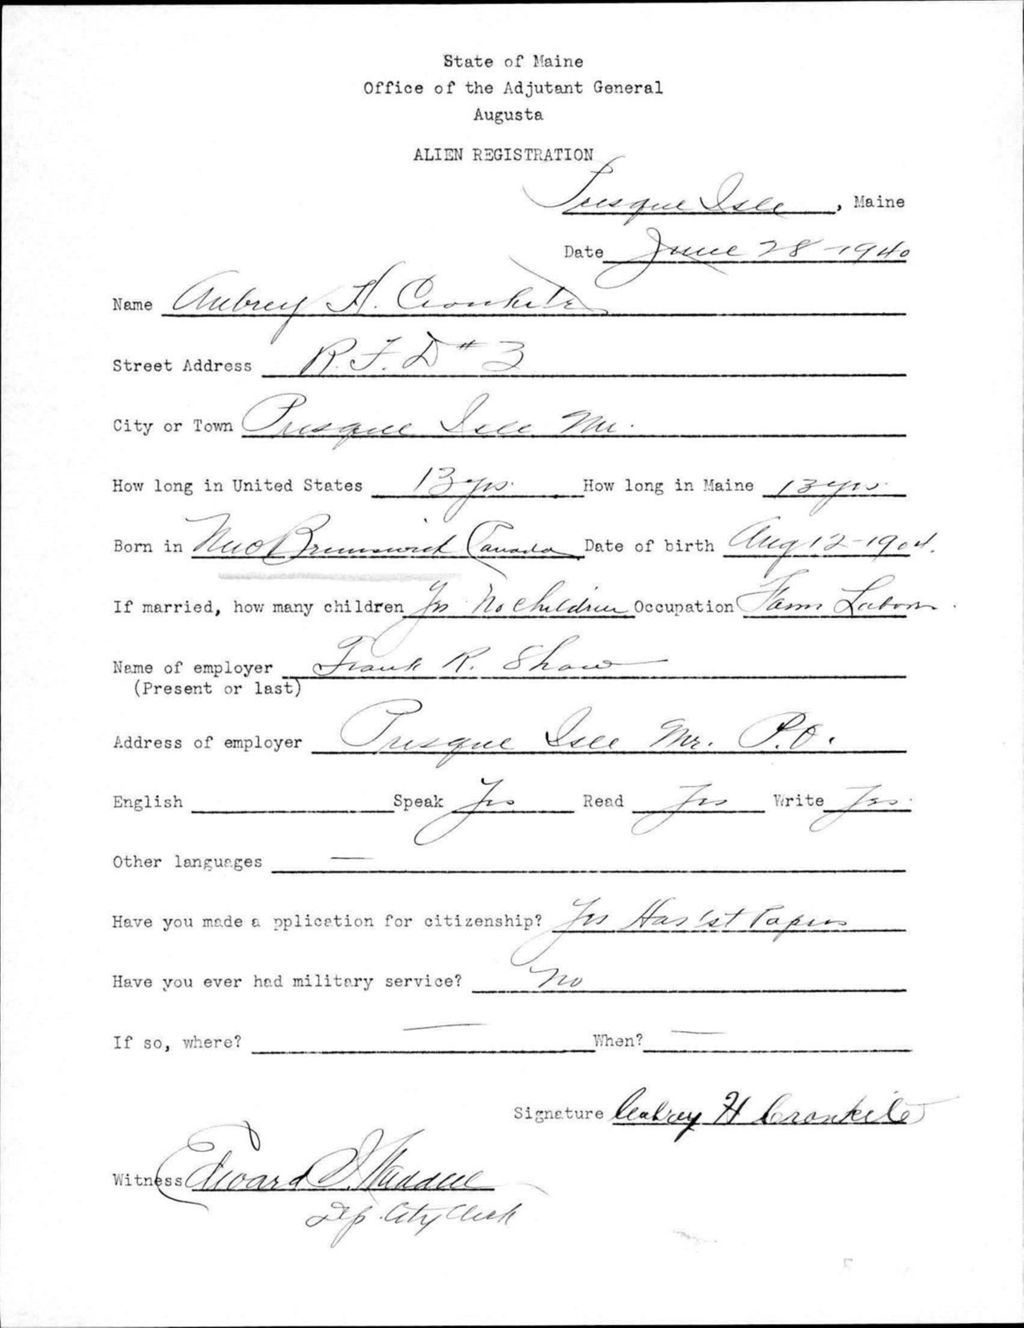 State of Maine
Office of the Adjutant General
Augusta
ALIEN REGISTRATION
Presque Isle, Maine
Date June 28-1940
Name Aubrey H. Cronkite
Street Address R.F.D #3
City or Town Presque Isle Me.
How long in United States 13 yrs. How long in Maine 13 yrs.
Born in New Brunswick Canada Date of birth Aug 12-1904.
If married, how many children Yes No children Occupation Farm Labor.
Name of employer Frank R. Shaw
(Present or last)
Address of employer Presque Isle Me. P.O.
English Speak Yes Read Yes Write Yes.
Other languages —
Have you made a pplication for citizenship? Yes Has 1st Papers
Have you ever had military service? No
If so, where? — When? —
Signature Aubrey H Cronkite
Witness Edward
Dep. City Clerk